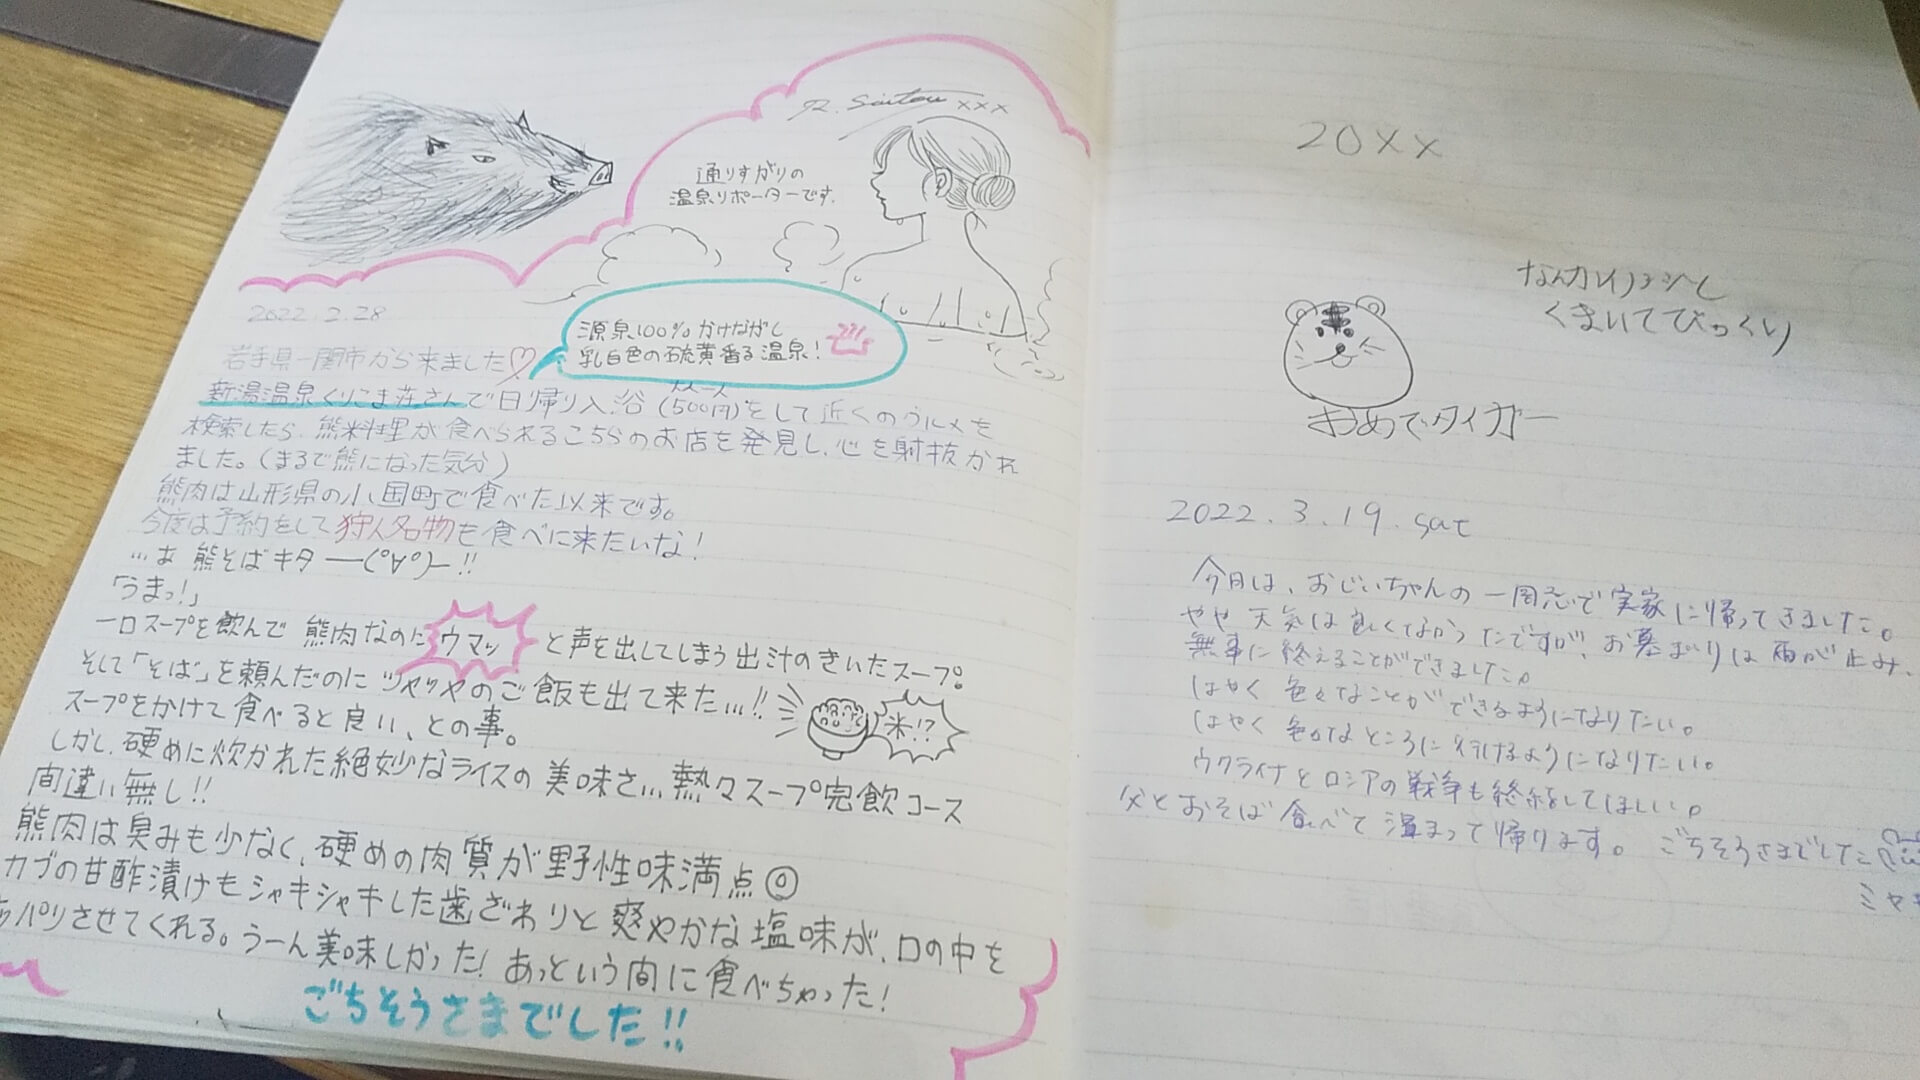 R. Saitou xxx
通りすがりの
温泉リポーターです。
源泉100%かけながし
乳白色の硫黄香る温泉!
2022.2.28
岩手県一関市から来ました♡
新湯温泉くりこま荘さんで日帰り入浴(500円)をして近くのグルメを
検索したら、熊料理が食べられるこちらのお店を発見し、心を射抜かれ
ました。(まるで熊になった気分)
熊肉は山形県の小国町で食べた以来です。
今度は予約をして狩人名物も食べに来たいな!
…あ 熊そばキター(°∀°)ー!!
「うまっ!」
一口スープを飲んで 熊肉なのにウマッ と声を出してしまう出汁のきいたスープ。
そして「そば」を頼んだのにツヤッヤのご飯も出て来た…!!
米!?
スープをかけて食べると良い、との事。
しかし、硬めに炊かれた絶妙なライスの美味さ… 熱々スープ完飲コース
間違い無し!!
熊肉は臭みも少なく、硬めの肉質が野性味満点◎
カブの甘酢漬けもシャキシャキした歯ざわりと爽やかな塩味が、口の中を
パリさせてくれる。うーん美味しかった! あっという間に食べちゃった!
ごちそうさまでした!!
20XX
くまいてびっくり
おめでタイガー
2022.3.19.sat
今日は、おじいちゃんの一周忌で実家に帰ってきました。
やや天気は良くなかったですが、お墓まいりは雨が止み、
無事に終えることができました。
はやく色々なことができるようになりたい。
はやく色々なところに行けるようになりたい。
ウクライナとロシアの戦争も終結してほしい。
父とおそば食べて温まって帰ります。ごちそうさまでした
ミヤ